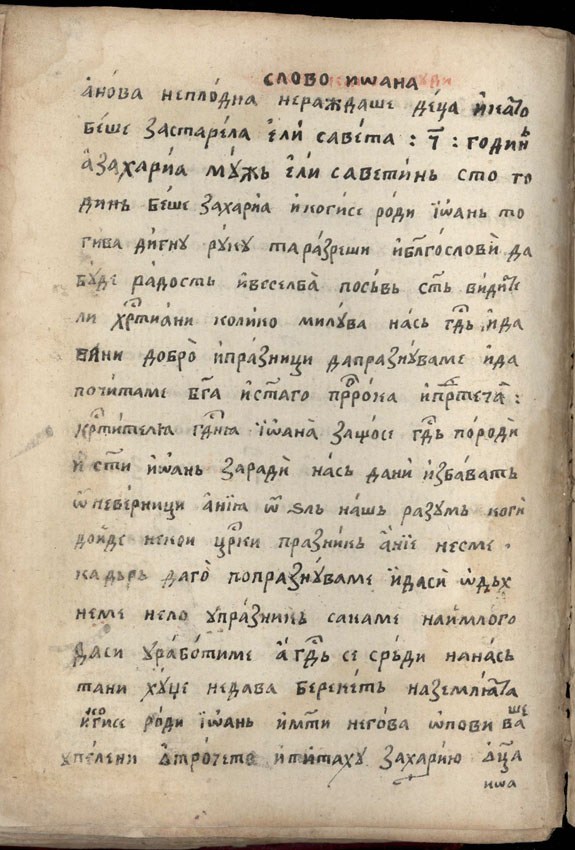 слово иѡана
анова неплодна нераждаше деца икато
беше застарела ели савета : ч҃ : годинь
азахариа мужь ели саветинь сто го
динь беше захариа икогисе роди їѡань то
гива дигну руку таразреши иблгослови да
буде радость ивеселба посьвь сть видите
ли хртиани колико милува нась гдь ида
ни добро ипразници дапразнуваме ида
почитаме бга истаго пррока ипртеча :
кртителꙗ гднꙗ їѡана защосе гдь породи
и сти иѡань заради нась дани избавать
ѿ неверници анїа ѿ ѕль нашь разумь коги
дойде некои црки празникь анїе несме
кадьрь даго попразнуваме идаси ѡдьх
неме нело упразникь сакаме наймлого
даси уработиме а гдь се сръди нанась
тани хуце недава берекеть наземлꙗта
икогисе роди їѡань имти негова ѡповиваше
упелени ѡтрочето ипитаху захарию ѡца
иѡа